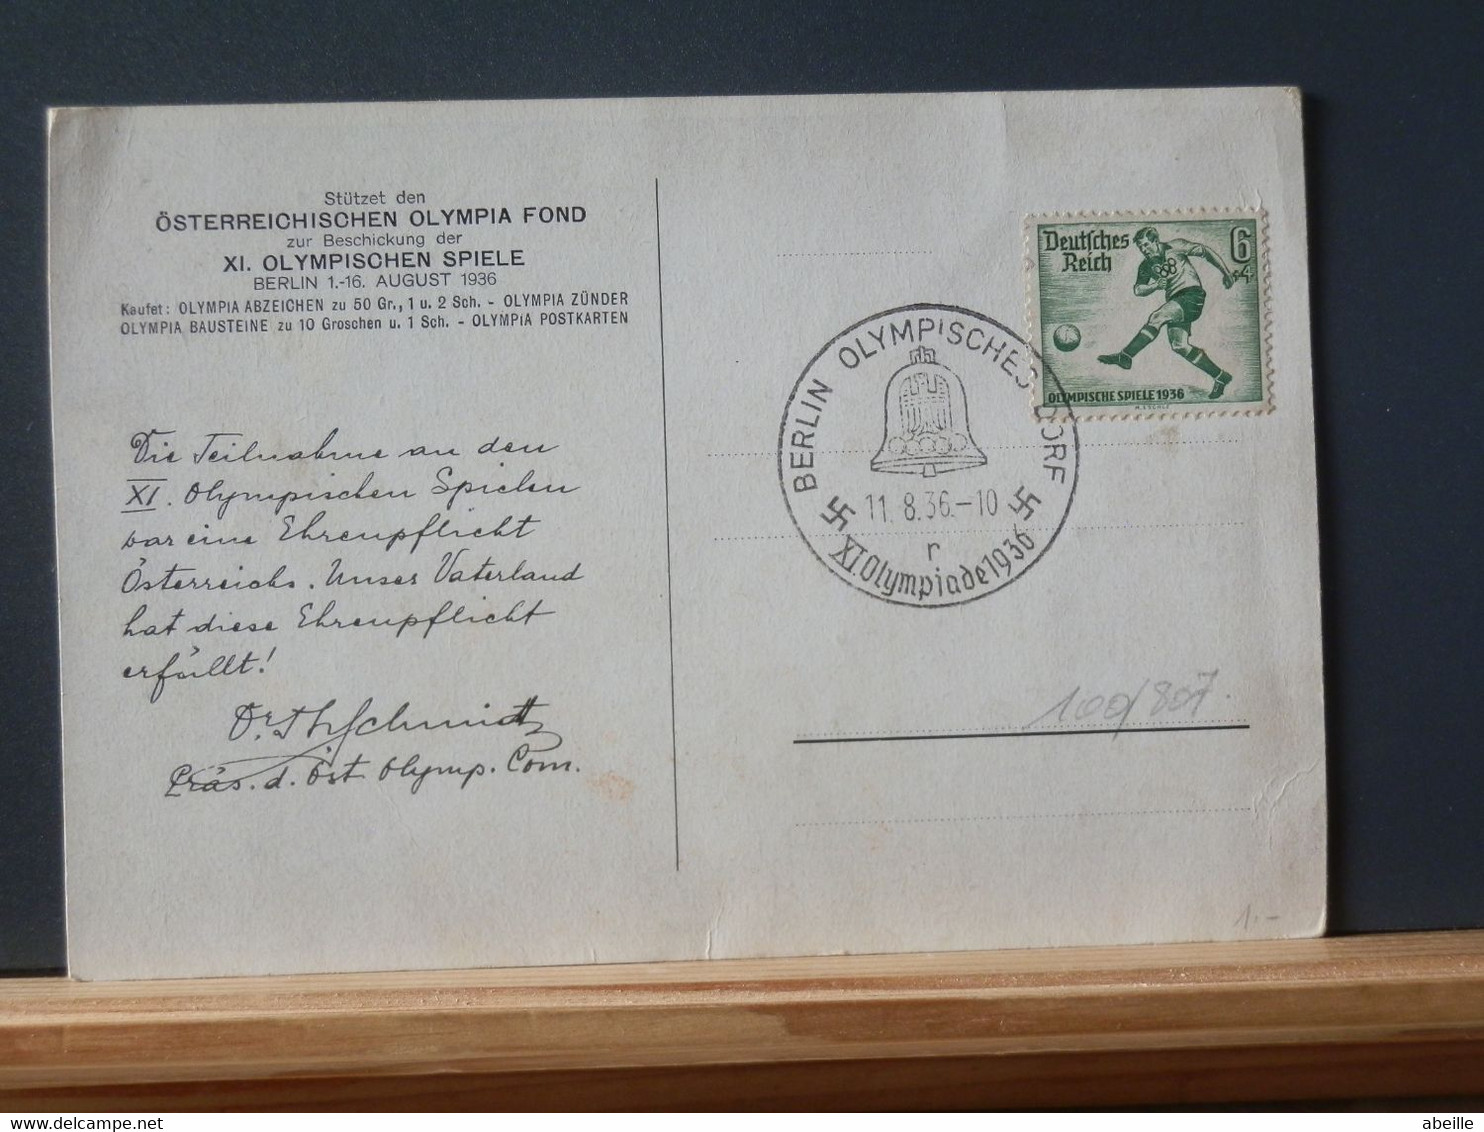 Stützet den
ÖSTERREICHISCHEN OLYMPIA FOND
zur Beschickung der
XI. OLYMPISCHEN SPIELE
BERLIN 1.-16. AUGUST 1936
Kaufet: OLYMPIA ABZEICHEN zu 50 Gr., 1 u. 2 Sch. - OLYMPIA ZÜNDER
OLYMPIA BAUSTEINE zu 10 Groschen u. 1 Sch. - OLYMPIA POSTKARTEN
Die Teilnahme an den
XI. Olympischen Spielen
war eine Ehrenpflicht
Österreichs. Unser Vaterland
hat diese Ehrenpflicht
erfüllt!
Dr. Th Schmidt
Präs. d. Öst. Olymp. Com.
Deutsches
Reich
6
+4
OLYMPISCHE SPIELE 1936
BERLIN OLYMPISCHES DORF
11.8.36.-10
r
XI. Olympiade 1936
100/807.
1.-
delcampe.net
abeille